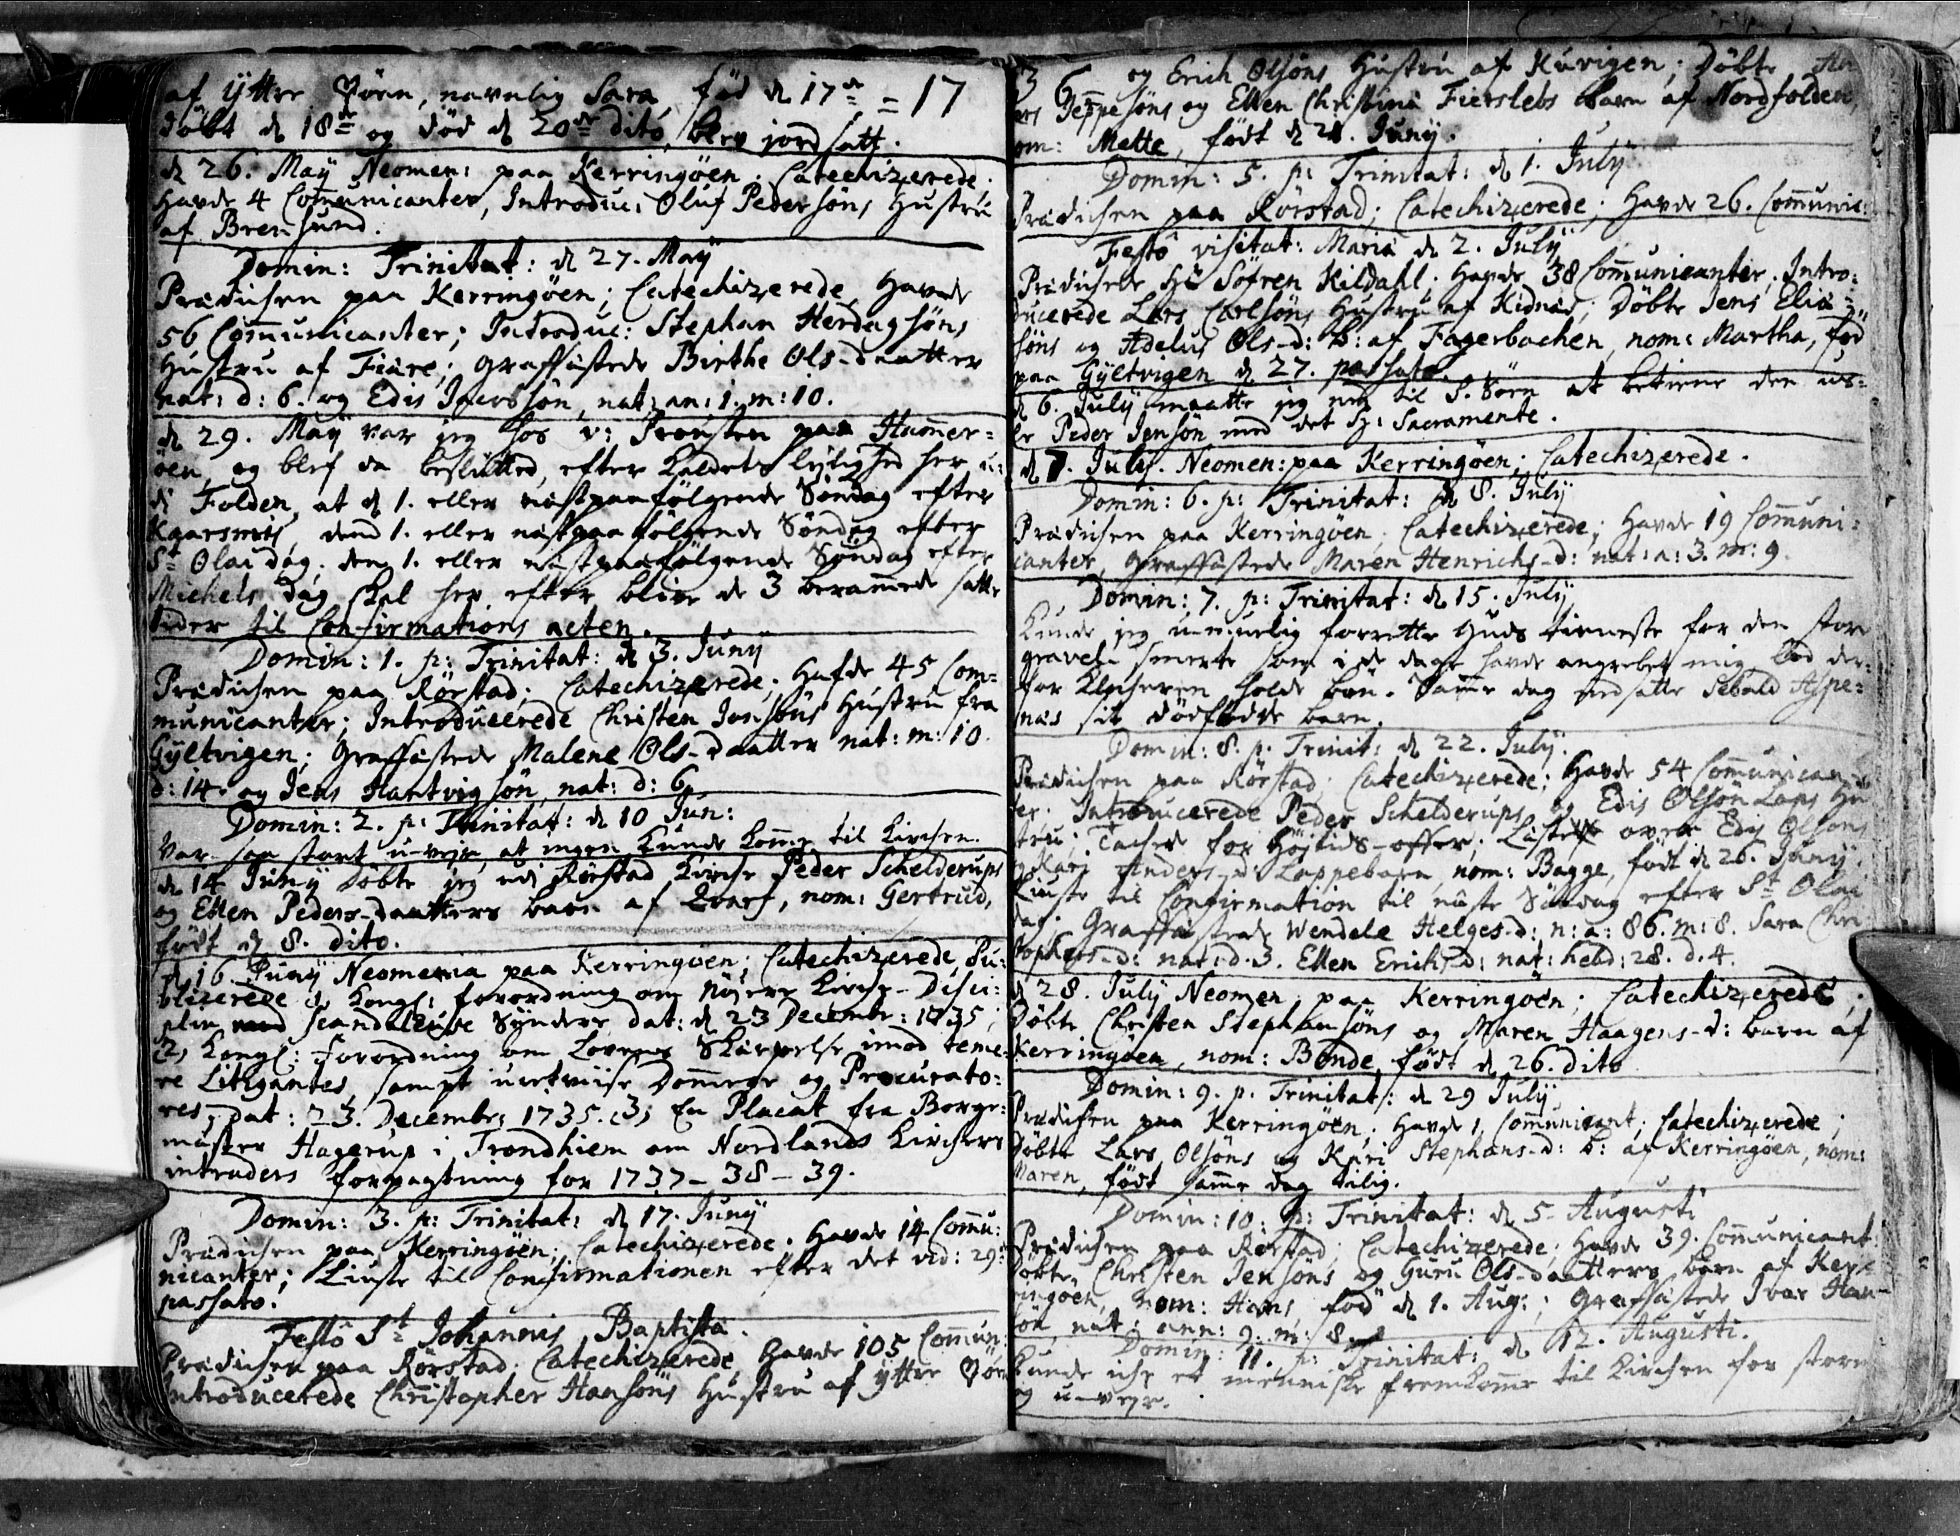 af Ÿttre Vören, navnlig Sara, föd d 17de = 17
döbt d 18de og död d 20de dito, blev jordsatt.
d 26. Maÿ Neomen: paa Kerringöen; Catechizerede;
havde 4 Com̄unicanter, Introduc: Oluf Pedersöns Hustru
af Brensund.
Domin: Trinitat: d 27. Maÿ
Prædichen paa Kerringöen; Catechizerede, Havde
56 Com̄unicanter; Introduc: Stephan Herdagsöns
Hustru af Fiære; Graffästede Birthe Ols-daatter
nat: d: 6. og Edis Jacobsön, nat: an: 1. m: 10.
d 29. Maÿ var jeg hos v: Prousten paa Ham̄er=
öen, og blef da beslutted, efter Kaldets leylighed her
i Folden, at d 1. eller nästpaafölgende Söndag efter
Kaarsmis, dend 1. eller nästpaafölgende Söndag efter
St Olai dag, den 1. eller nästpaafölgende Söndag efter
Michels dag skal her efter blive de 3 beram̄ede satte
tider til Confirmations acten.
Domin: 1. p: Trinitat: d 3. Junÿ
Prædichen paa Rörstad; Catechizerede. Hafde 45 Com=
municanter; Introducerede Christen Jonsöns Hustru fra
Gyltvigen; Graffästede Malene Ols-daatter nat: m: 10.
d: 14. og Jens Hartvigsön, nat: d: 6.
Domin: 2. p: Trinitat: d 10 Jun:
Var saa stort u-vejr, at ingen kunde kom̄e til kirchen.
d 14 Junÿ döbte jeg udi Rörstad Kirche Peder Schelderups
og Ellen Peders-daatters barn af Qvarf, nom: Gertrud,
födt d 8. dito.
d 16 Junÿ Neomenia paa Kerringöen; Catechizerede, Pu=
blicerede 1, Kongl: forordning om nöjere Kirche-Disci=
plin scandaleuse Syndere, dat: d 23 Decembr: 1735;
2, Kongl: forordning om Lovens Skierpelse imod teme=
re Litigantes, sampt uretviise Dom̄ere og Procurato=
res, dat: 23. Decembr: 1735. 3, En Placat fra Borge=
mäster Hagerup i Trondhiem om Nordlands Kirchers
intraders forpagtning for 1737 - 38 - 39.
Domin: 3. p: Trinitat: d 17. Junÿ
Prædichen paa Kerringöen; Catechizerede. Havde 14 Com̄u:
nicanter; Liuste til Confirmationen efter det vid: 29:
passato.
Festo St Johannis Baptistæ.
Prædichen paa Rörstad, Catechizerede, Havde 105 Com̄un:
Introducerede Christopher Hansöns Hustru af Ÿttre Vör
36 og Erich Olsöns Hustru af Kurigen; Döbte
Jeppesöns og Ellen Christina Fierslebs barn af Nordfolden,
nom: Mette, födt d 24. Junÿ.
Domin: 5. p: Trinitat: d 1. Julÿ
Prædichen paa Rörstad; Catechizerede; Havde 26. Com̄unic:
Festo visitat: Mariæ d 2. Julÿ
Prædichede Hr Söfren Kildahl. Havde 38 Com̄unicanter. Intro:
ducerede Lars Carlsöns Hustru af Kidnäs; Döbte Jens Elia=
söns og Adelus Ols-d: b: af Fagerbachen, nom: Martha, föd
paa Gyltvigen d 27. passato.
d 6. Julÿ maatte jeg ud til S. Vörn at betiene den us=
le Peder Jensön med det H: Sacramente.
d 7. Julÿ. Neomen: paa Kerringöen; Catechizerede.
Domin: 6. p: Trinitat: d 8. Julÿ
Prædichen paa Kerringöen, Catechizerede; Havde 19 Com̄uni=
canter, Graffästede Maren Henrichs-d: nat: a: 3. m: 9.
Domin: 7. p: Trinitat: d 15. Julÿ
Kunde jeg u-muelig forrette Guds tieneste for den store
gravel-smerte som i de dage havde angrebet mig, lod der=
for Klocheren holde bön. Sam̄e dag nedsatte Sebald Aspe=
näs sit dödfödde barn.
Domin: 8. p. Trinit: d 22. Julÿ.
Prædichen paa Rörstad; Catechizerede; Havde 54 Com̄unican=
ter. Introducerede Peder Schelderups og Edis Olsön Laps Hu
stru; Tachede for Höjtids-offer; over Edis Olsöns
og Kari Anders-d: Lappebarn, nom: Bagge, födt d 20. Junÿ.
Liuste til Confirmation til näste Söndag efter St Olai
dag. Graffästede Wendele Helges-d: n: a: 86. m: 8. Sara Chri
stophers-d: nat: d. 3. Ellen Erichs-d: nat: hebd: 28. d. 4.
d 28. Julÿ Neomen, paa Kerringöen; Catechizerede;
Döbte Christen Stephansöns og Maren Haagens-d: barn af
Kerringöen, nom: Bonde, födt d 26. dito
Domin: 9. p. Trinitat: d 29 Julÿ
Prædichen paa Kerringöen; Havde 1, Com̄unicant; Catechizerede;
Döbte Lars Olsöns og Kari Stephans-d: b: af Kerringöen, nom:
Maren, födt sam̄e dag tilig.
Domin: 10. p: Trinitat: d 5 Augusti
Prædichen paa Rörstad; Catechizerede; Havde 39. Com̄unicant
Döbte Christen Jensöns og Guru Ols-daatters barn af Ker=
ringöen, nom: Hans, föd d 1. Aug:; Graffästede Ivar Han-
sön, nat: ann: 9. m: 8.
Domin: 11. p: Trinitat: d 12. Augusti.
Kunde iche et menniske fremkom̄e til Kirchen for storm
og u-vejr.